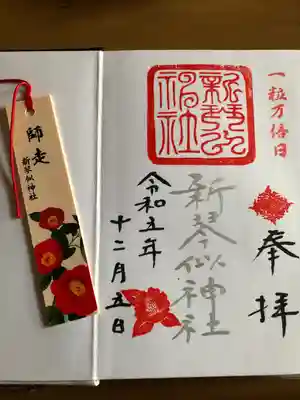 一粒万倍日
奉拝
新琴似神社
新琴似神社
令和五年
十二月五日
師走
新琴似神社